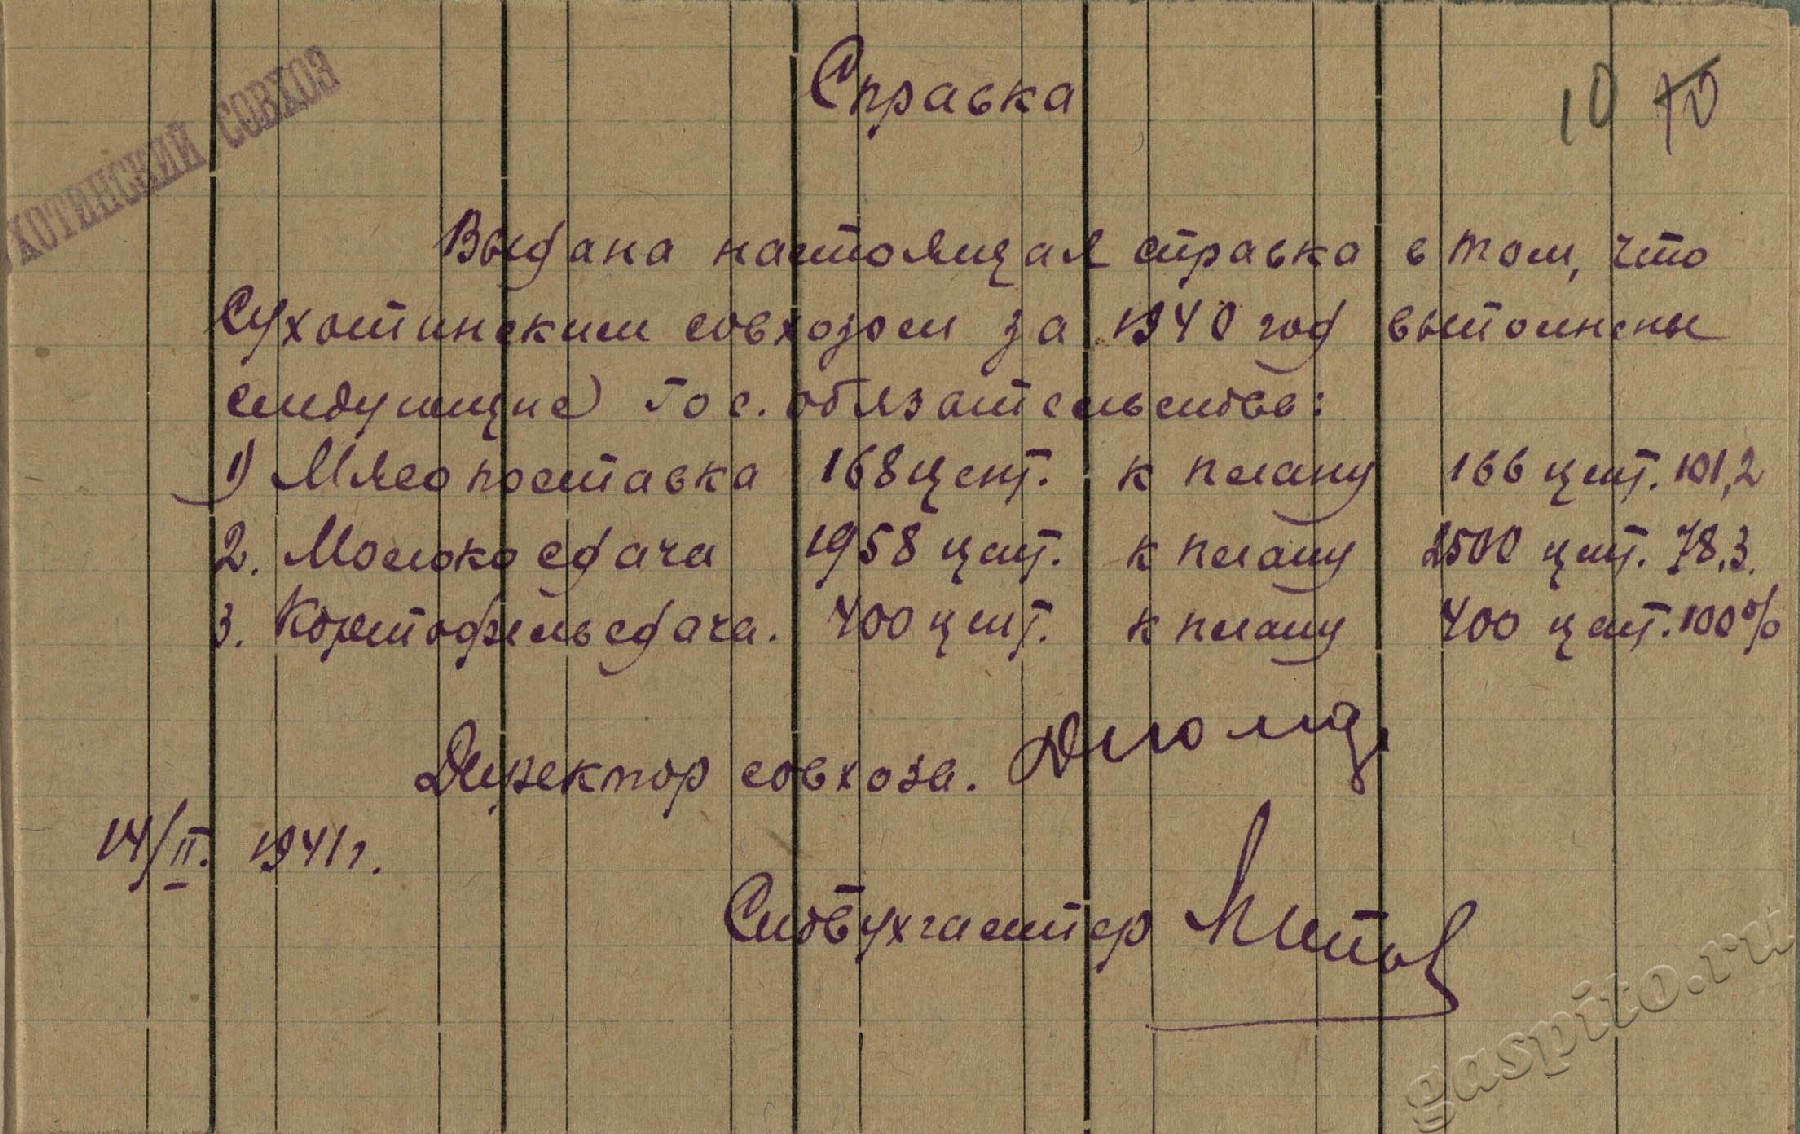 ХОТИНСКИЙ СОВХОЗ
Справка
10 10
Выдана настоящая справка в том, что
Сухотинским совхозом за 1940 год выполнены
следующие Гос. обязательства:
1) Мясопоставка 168 цент. к плану 166 цнт. 101,2
2. Молокосдача 1958 цнт. к плану 2500 цнт. 78,3.
3. Картофельсдача. 400 цнт. к плану 400 цнт. 100%
Директор совхоза.
14/II. 1941 г.
Счетбухгалтер
gaspito.ru